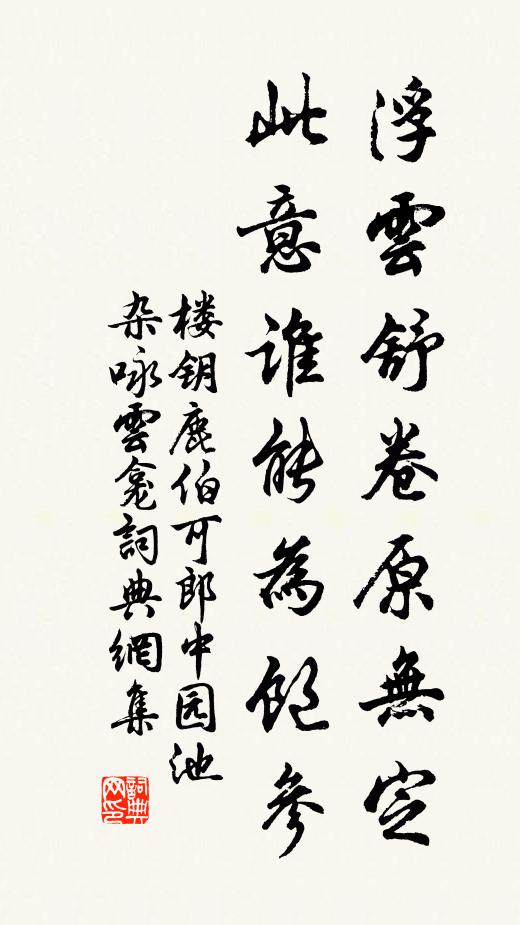 浮雲舒卷原無定
此意誰能為飽參
楼钥鹿伯可郎中园池
杂咏雲龛詞典網集
詞典網印